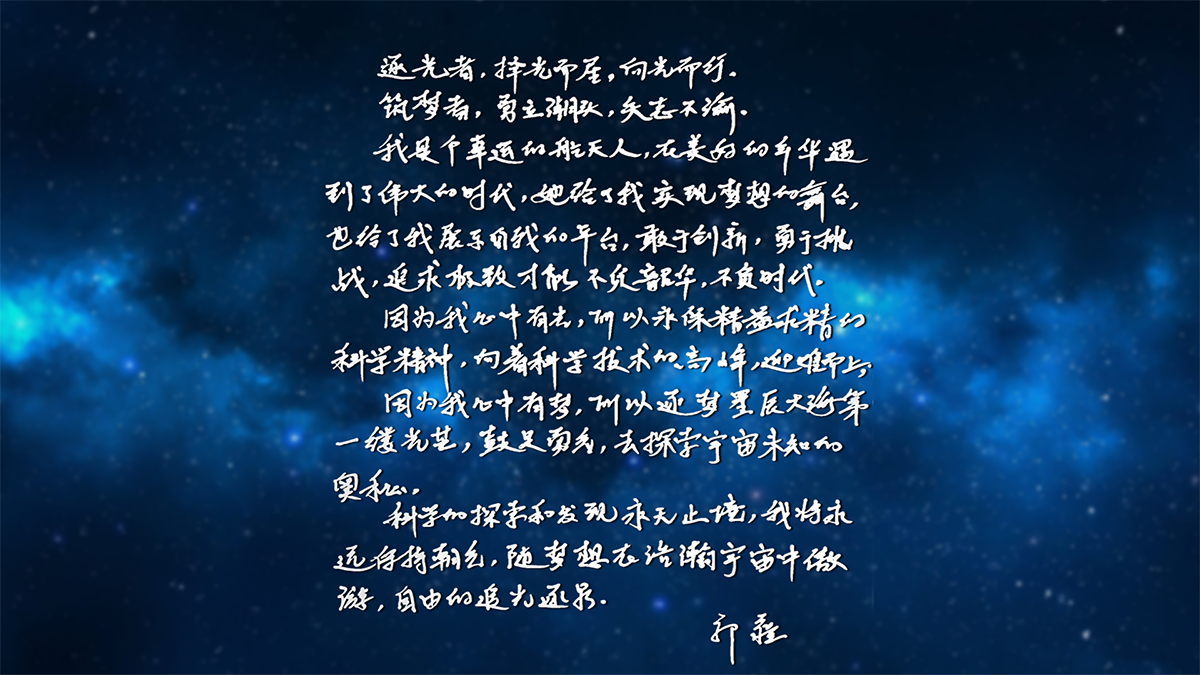 逐光者，择光而居，向光而行。
筑梦者，勇立潮头，矢志不渝。
我是个幸运的航天人，在美好的年华遇
到了伟大的时代，她给了我实现梦想的舞台，
也给了我展示自我的平台，敢于创新，勇于挑
战，追求极致才能不负韶华，不负时代。
因为我心中有光，所以永保精益求精的
科学精神，向着科学技术的高峰，迎难而上；
因为我心中有梦，所以逐梦星辰大海第
一缕光芒，鼓足勇气，去探索宇宙未知的
奥秘。
科学的探索和发现永无止境，我将永
远保持朝气，随梦想在浩瀚宇宙中遨
游，自由的追光逐影。
郭